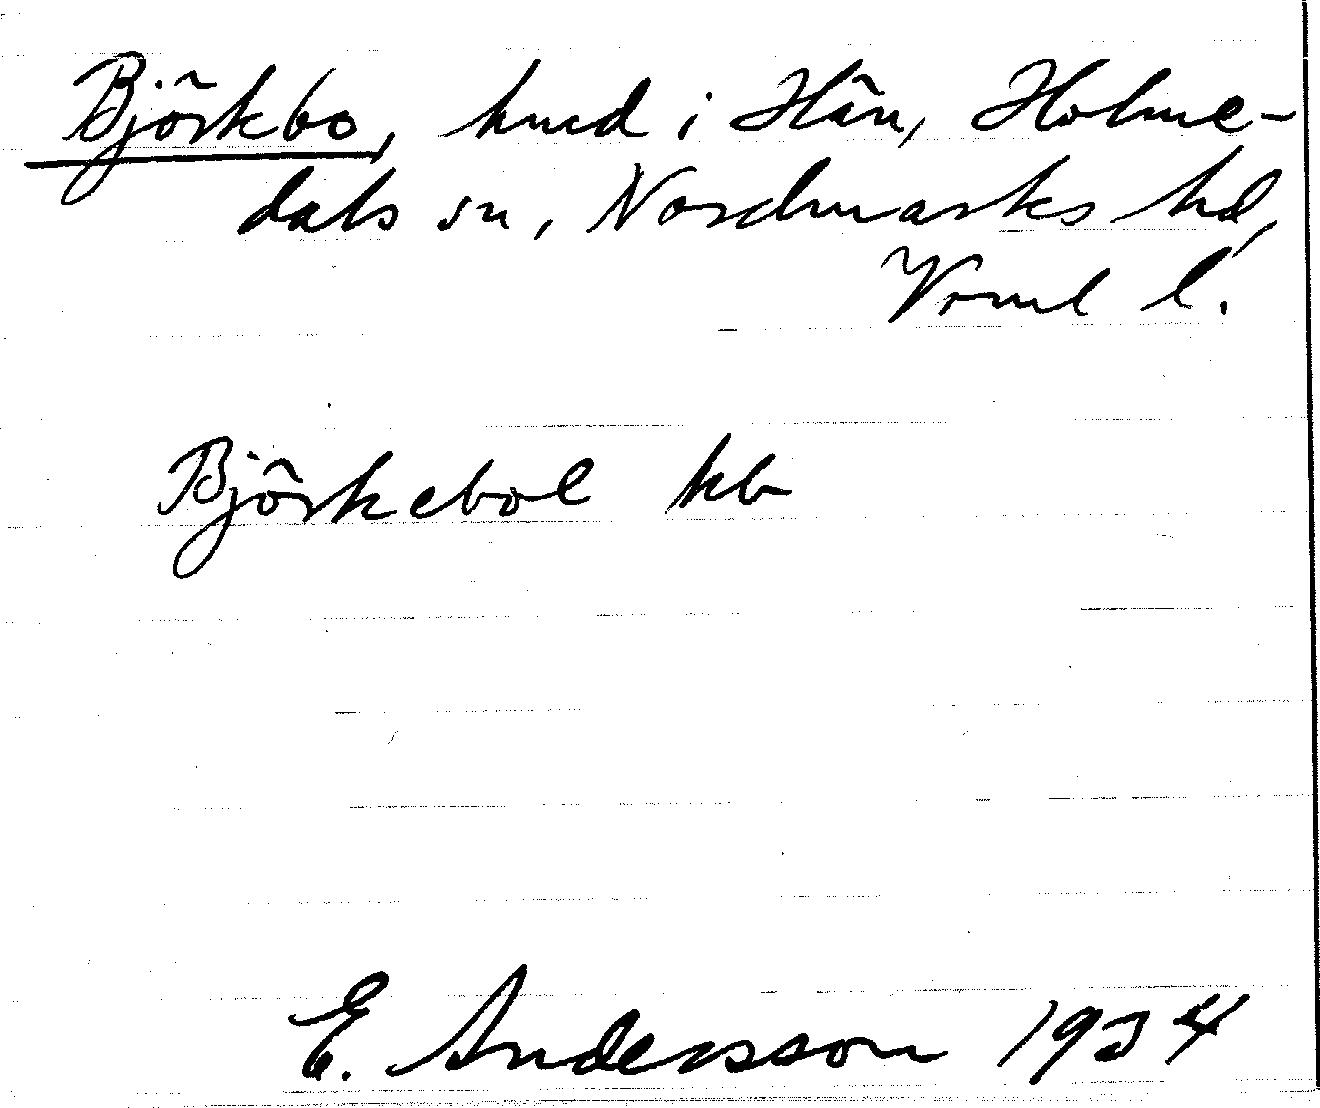 Björkbo, hmd i Hån, Holme-
dals sn, Nordmarks hd,
Vrml l.
Björkebol kb
E. Andersson 1934